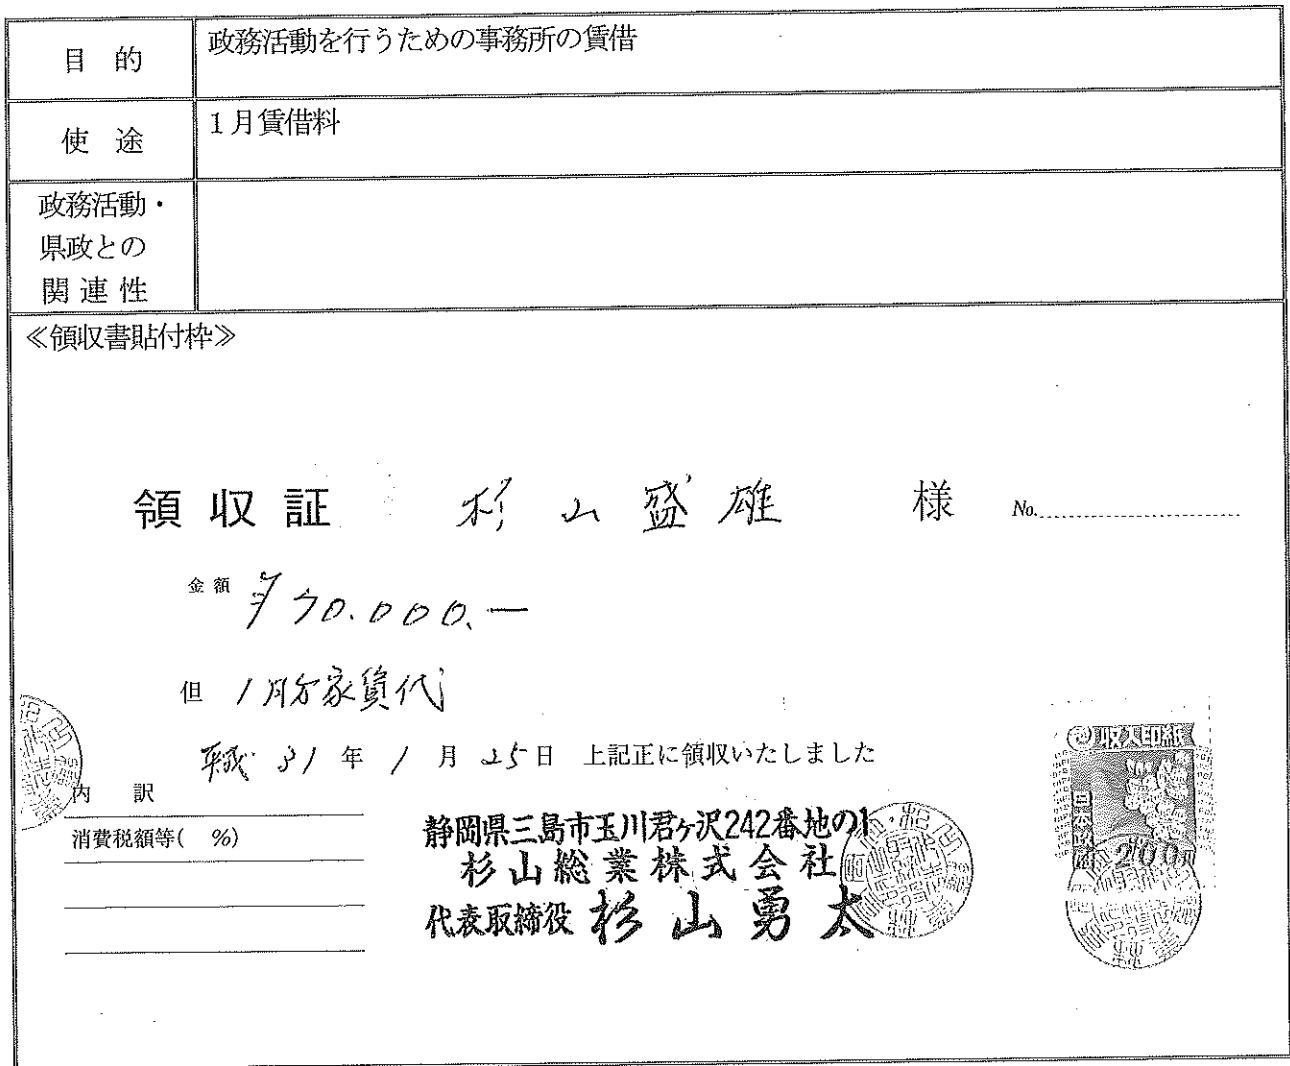 目 的
政務活動を行うための事務所の賃借
使 途
1月賃借料
政務活動・
県政との
関 連 性
≪領収書貼付枠≫
領 収 証 杉山盛雄 様 No.
金 額 ¥70.000.ー
但 1月分家賃代
平成 31 年 1 月 25 日 上記正に領収いたしました
内 訳
消費税額等( %)
静岡県三島市玉川君ヶ沢242番地の1
杉山総業株式会社
代表取締役 杉山勇太
収入印紙
日本政府
200円